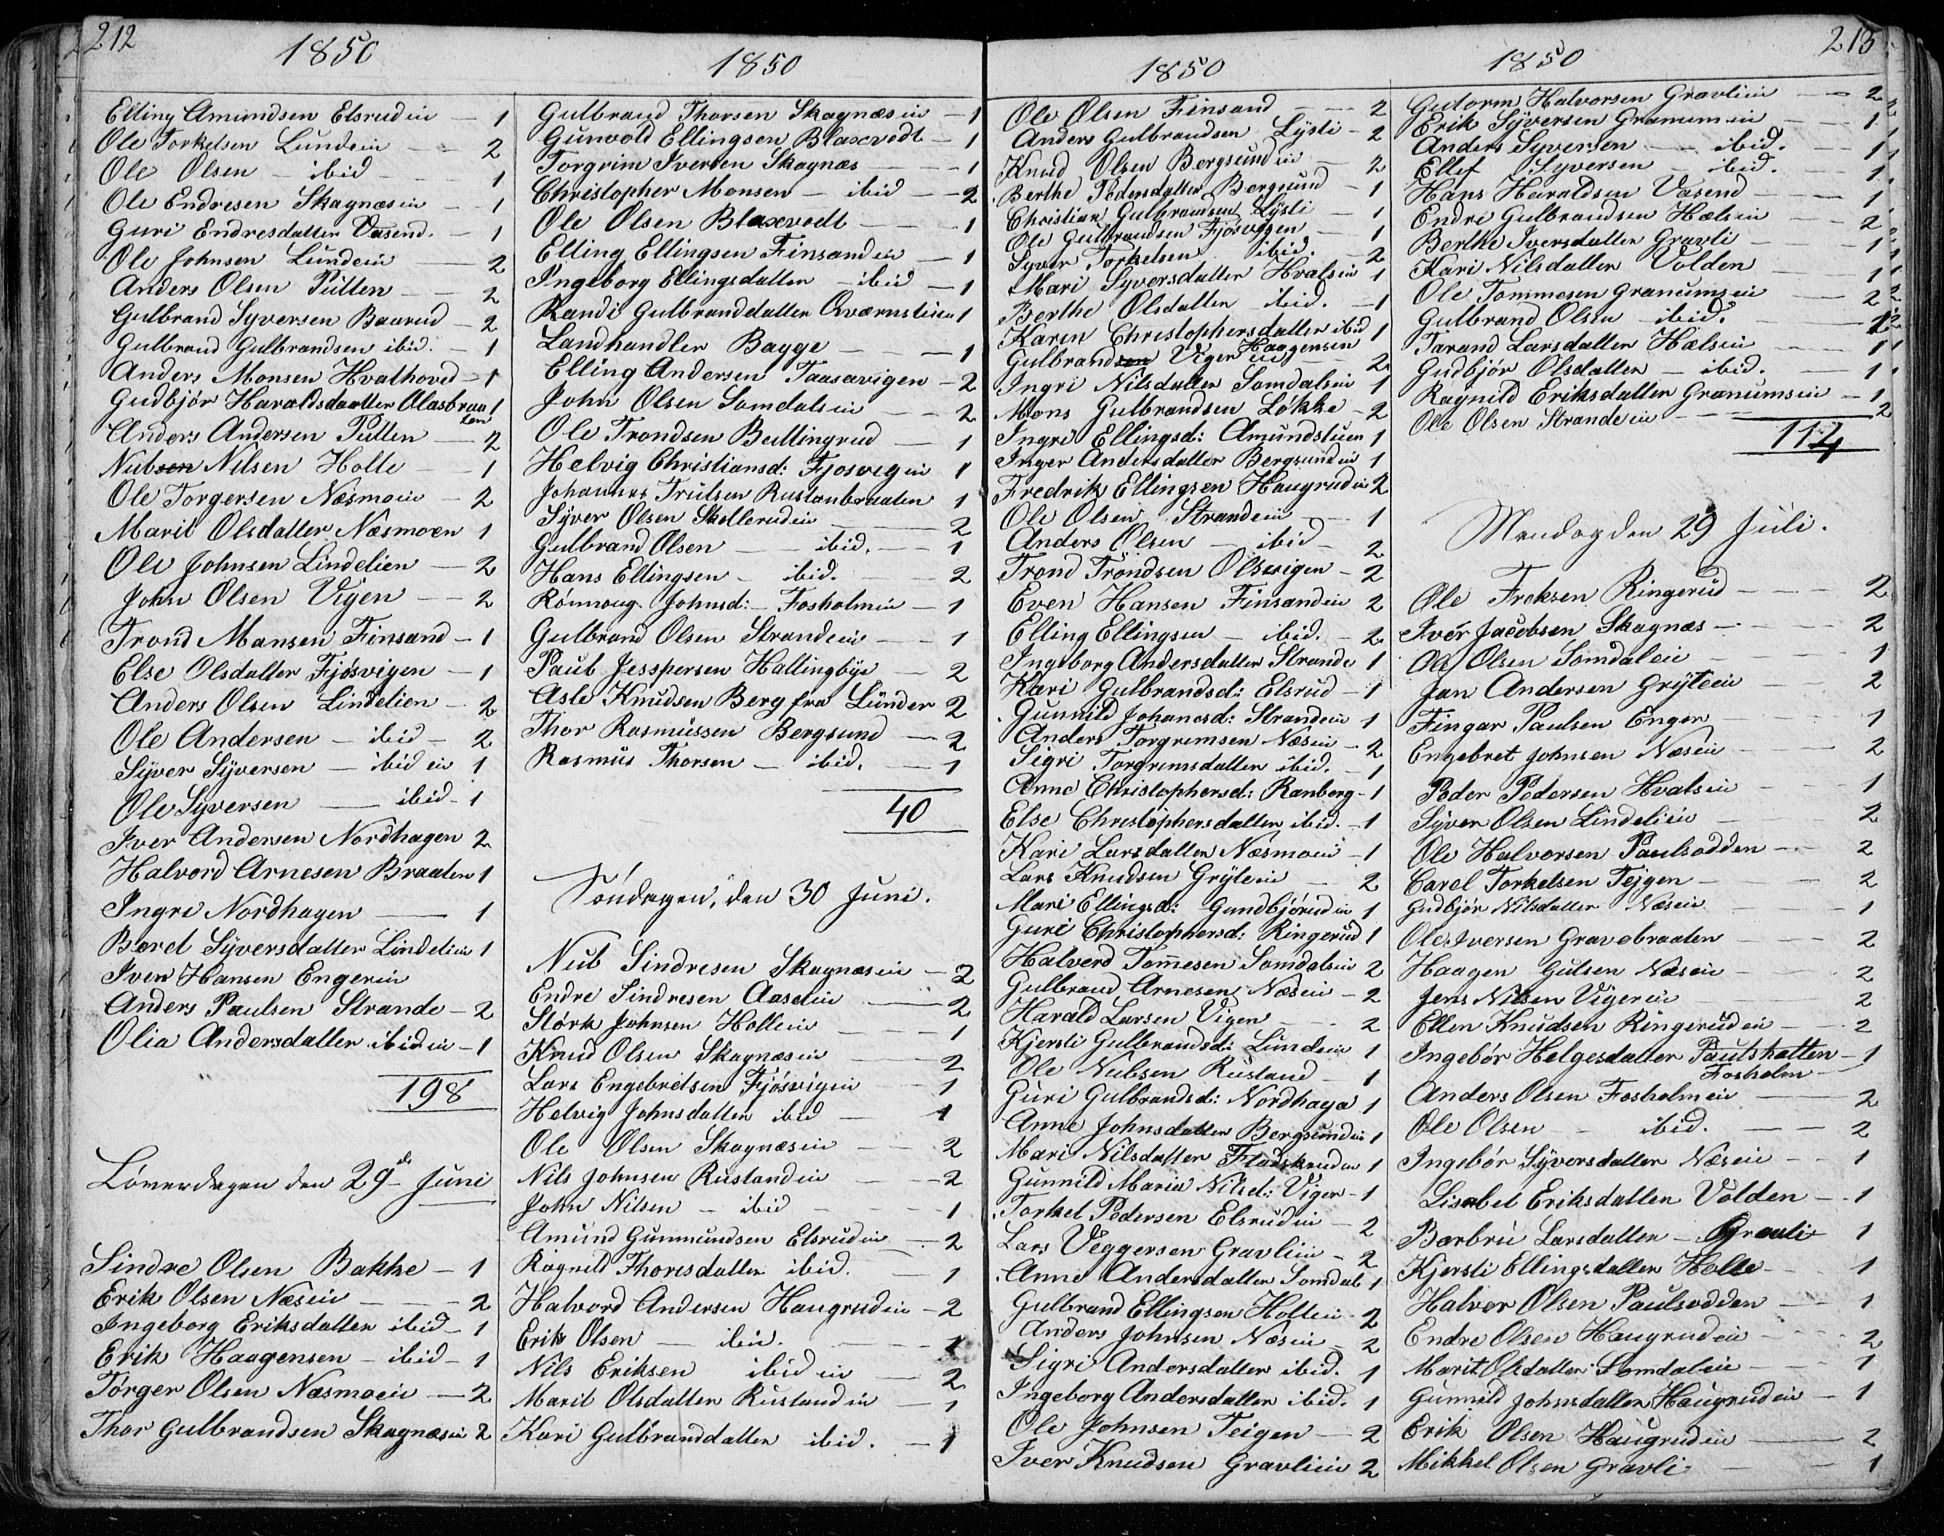 212
1850
Elling Amundsen Elsrudein — 1
Ole Torkelsen Lundein — 2
Ole Olsen — ibid — 1
Ole Endresen Skagnæsein — 1
Guri Endresdatter Vasend. — 1
Ole Johnsen Lundein — 2
Anders Olsen Pütten — 2
Gulbrand Syversen Baarud — 2
Gulbrand Gulbrandsen ibid. — 1
Anders Monsen Hvalhoved — 1
Gudbjör Haraldsdaatter Olasbraa 1
ten
Anders Andersen Pütten — 2
Nubsen Nilsen Holte — 1
Ole Torgersen Næsmoein — 2
Marit Olsdatter Næsmoen 1
Ole Johnsen Lindelien — 2
John Olsen Vigen — 2
Trond Mansen Finsand — 1
Else Olsdatter Fjösvigen — 1
Anders Olsen Lindelien — 2
Ole Andersen — ibid — 2
Syver Syversen — ibid ein 1
Ole Syversen — ibid — 1
Iver Andersen Nordhagen 2
Halvord Arnesen Braaten 1
Ingri Nordhagen — 1
Barel Syversdatter Lindelien 1
Iver Hansen Engerein
Anders Paulsen Strande — 2
Olia Andersdatter ibid ein — 1
198
Löverdagen den 29de Juni
Sindre Olsen Bakke — 1
Erik Olsen Næsein — 2
Ingeborg Eriksdatter ibid — 1
Erik Haagensen — ibid — 1
Törger Olsen Næsmoein — 2
Thor Gulbrandsen Skagnæsein 2
1850
Gulbrand Thorsen Skagnæsein — 1
Gunvold Ellingsen Blaxrodt — 1
Torgrim Iversen Skagnæs — 1
Christopher Monsen — ibid — 2
Ole Olsen Blaxrodt — 1
Elling Ellingsen Finsandein — 1
Ingeborg Ellingsdatter — ibid — 1
Randi Gulbranddatter Qværnstein 1
Landhandler Bagge — 1
Elling Andersen Taasavigen — 2
John Olsen Somdalein — 2
Ole Trondsen Bullingrud — 1
Helvig Christiansd: Fjosvigein 1
Johannes Trulsen Rustanbraaten 1
Syver Olsen Skollerudein — 2
Gulbrand Olsen — ibid. — 1
Hans Ellingsen — ibid. — 2
Rönnoug Johnsd: — Fosholmein — 1
Gulbrand Olsen Strandein — 1
Paul Jesspersen Hallingbye — 2
Asle Knudsen Berg fra Lünder 2
Thor Rasmussen Bergsund — 2
Rasmus Thorsen — ibid. — 1
40
Söndagen, den 30 Juni.
Nub Sindresen Skagnæsein — 2
Endre Sindresen Aaselein — 2
Störk Johnsen Hollein — 1
Knud Olsen Skagnæsein — 2
Lars Engebretsen Fjösvigein — 1
Helvig Johnsdatter ibid — 1
Ole Olsen Skagnæsein — 2
Nils Johnsen Rustandein — 2
John Nilsen — ibid — 1
Amund Gunmundsen Elsrudein — 2
Ragnild Thorsdatter ibid. — 1
Halvord Andersen Haugrudein — 2
Erik Olsen — ibid. — 1
Nils Eriksen ibid ein — 2
Marit Olsdatter Rustandein — 1
Kari Gulbranddatter ibid. — 1
1850
Ole Olsen Finsand — 2
Anders Gulbrandsen Lÿsli — 2
Knud Olsen Bergsundein — 2
Berthe Pedersdatter Bergsund — 1
Christian Gulbrandsen Lÿsli — 1
Ole Gulbrandsen Fjösvigen — 1
Syver Torkelsen ibid. — 2
Mari Syversdatter Hvalsein 1
Berthe Olsdatter ibid. — 1
Karen Christophersdatter ibid 1
Gulbrandsen Viger Haagensen — 2
Ingri Nilsdatter Somdalein 1
Mons Gulbrandsen Løkke — 2
Ingri Ellingsd: Amundstuen 1
Inger Andersdatter Bergsundein 1
Fredrik Ellingsen Haugrudein 2
Ole Olsen Strandein — 1
Anders Olsen — ibid — 2
Trond Tröndsen Olsvigen — 2
Even Hansen Finsandein 2
Elling Ellingsen — ibid. — 2
Ingeborg Andersdatter Strande 1
Kari Gulbrandsd: Elsrud — 1
Gunnild Johanesd: Strandein 1
Anders Torgrimsen Næsein — 2
Sigri Torgrimsdatter ibid. — 1
Anne Christophersd: Ranberg — 1
Else Christophersdatter ibid. — 1
Kari Larsdatter Næsmoein — 1
Lars Knudsen Grÿtein — 2
Mari Ellingsd: Gundbjörudein 1
Guri Christophersd: Ringerud 1
Halverd Tomesen Somdalein 2
Gulbrand Arnesen Næsein — 2
Harald Larsen Vigen — 2
Kjersti Gulbrandsd: Lundein 1
Ole Nubsen Rustand — 1
Guri Gulbrandsd: Nordhaga 1
Anne Johnsdatter Bergsundein 1
Mari Nilsdatter Flaskerudein 1
Gunnild Maria Nilsd: Viger — 1
Torkel Pedersen Elsrudein — 2
Lars Veggersen Gravliein — 2
Anne Andersdatter Somdal 1
Gulbrand Ellingsen Hollein — 2
Anders Johnsen Næsein — 2
Sigri Andersdatter ibid. 1
Ingeborg Andersdatter ibid. 1
Ole Johnsen Teigen — 2
Iver Knudsen Gravliein 2
1850
213
Gutorm Halvorsen Gravliein — 2
Erik Syversen Granumein — 1
Anders Syversen — ibid. — 1
Ellef Syversen ibid. — 1
Hans Haraldsen Vasend — 1
Endre Gulbrandsen Hælsein — 2
Berthe Iversdatter Gravli — 1
Kari Nilsdatter Volden — 1
Ole Tommesen Granumsein — 2
Gulbrand Olsen ibid.
Tarand Larsdatter Hælsein — 1
Gudbjör Olsdatter — ibid. — 1
Ragnild Eriksdatter Granumsein — 1
Ole Olsen Strandein — 2
114
Mandag den 29 Juli.
Ole Froksen Ringerud — 2
Ivér Jacobsen Skagnæs — 2
Ole Olsen Somdalein — 1
Jan Andersen Grÿtein — 2
Fingar Paulsen Enger — 1
Engebret Johnsen Næsein — 2
Peder Pedersen Hvalsein — 1
Syver Olsen Lindeliein — 2
Ole Halvorsen Paulsodden — 2
Carel Torkelsen Tejgen — 2
Gudbjör Nilsdatter Næsein — 1
Ole Iversen Gravebraaten — 2
Haagen Gulsen Næsein — 2
Jens Nilsen Vigerein — 2
Ellen Knudsen Ringerudein — 2
Ingebör Helgesdatter Paulshatten — 1
Fosholm
Anders Olsen Fosholmein — 2
Ole Olsen — ibid. — 2
Ingebör Sÿversdatter Næsein — 1
Lisabel Eriksdatter Volden — 1
Barbru Larsdatter — Gravli 1
Kjersti Ellingsdatter Holte — 1
Halvor Olsen Paulsodden — 1
Endre Olsen Haugrudein — 2
Marit Olsdatter Somdalein — 1
Gunnild Johnsdatter Haugrudein — 1
Erik Olsen Haugrudein — 2
Mikkel Olsen Gravli — 1